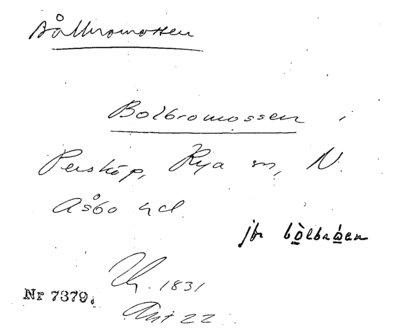 Bålbromossen
Bolbromossen i
Perstorp, Rya sn, N.
Åsbo hd.
jfr bòlbaden
1831
Akt 22
Nr 7379.